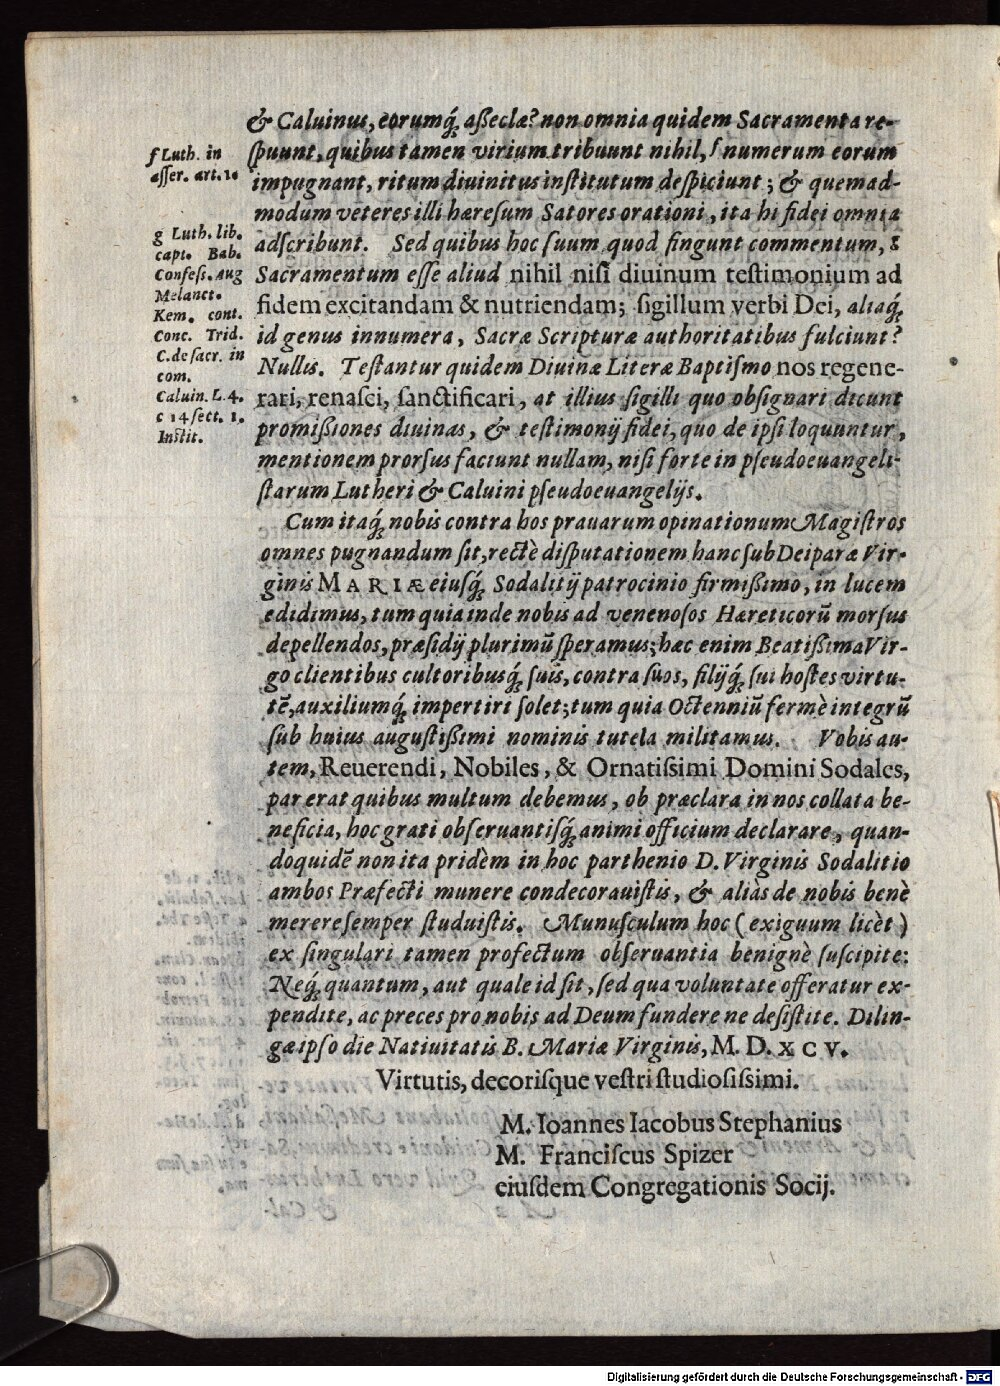 & Caluinus, eorumq́; aßeclæ? non omnia quidem Sacramenta re-
ſpuunt, quibus tamen virium tribuunt nihil, f numerum eorum
impugnant, ritum diuinitus inſtitutum deſpiciunt; & quemad-
modum veteres illi hæreſum Satores orationi, ita hi fidei omnia
adſcribunt. Sed quibus hoc ſuum quod fingunt commentum, g
Sacramentum eſſe aliud nihil niſi diuinum teſtimonium ad
fidem excitandam & nutriendam; ſigillum verbi Dei, aliaq́;
id genus innumera, Sacræ Scripturæ authoritatibus fulciunt?
Nullis. Teſtantur quidem Diuinæ Literæ Baptiſmo nos regene-
rari, renaſci, ſanctificari, at illius ſigilli quo obſignari dicunt
promißiones diuinas, & teſtimonij fidei, quo de ipſi loquuntur,
mentionem prorſus faciunt nullam, niſi forte in pſeudoeuangeli-
ſtarum Lutheri & Caluini pſeudoeuangelijs.
f Luth. in
aſſer. art. 1.
g Luth. lib.
capt. Bab.
Confeſſ. Aug
Melanct.
Kem. cont.
Conc. Trid.
C. de ſacr. in
com.
Caluin. L. 4.
c 14 ſect. 1.
Inſtit.
Cum itaq́; nobis contra hos prauarum opinationum Magiſtros
omnes pugnandum ſit, rectè diſputationem hanc ſub Deiparæ Vir-
ginis MARIÆ eiuſq́; Sodalitij patrocinio firmißimo, in lucem
edidimus, tum quia inde nobis ad venenoſos Hæreticorũ morſus
depellendos, præſidij plurimũ ſperamus; hæc enim Beatißima Vir-
go clientibus cultoribusq́; ſuis, contra ſuos, filijq́; ſui hoſtes virtu-
tẽ, auxiliumq́; impertiri ſolet; tum quia Octenniũ fermè integrũ
ſub huius auguſtißimi nominis tutela militamus. Vobis au-
tem, Reuerendi, Nobiles, & Ornatiſsimi Domini Sodales,
par erat quibus multum debemus, ob præclara in nos collata be-
neficia, hoc grati obſeruantiſq́; animi officium declarare, quan-
doquidẽ non ita pridèm in hoc parthenio D. Virginis Sodalitio
ambos Præfecti munere condecorauiſtis, & aliàs de nobis benè
merere ſemper ſtuduiſtis. Munuſculum hoc (exiguum licèt)
ex ſingulari tamen profectum obſeruantia benignè ſuſcipite:
Neq́; quantum, aut quale id ſit, ſed qua voluntate offeratur ex-
pendite, ac preces pro nobis ad Deum fundere ne deſiſtite. Dilin-
gæ ipſo die Natiuitatis B. Mariæ Virginis, M. D. XCV.
Virtutis, decoriſque veſtri ſtudioſiſsimi.
M. Ioannes Iacobus Stephanius
M. Franciſcus Spizer
eiuſdem Congregationis Socij.
Digitalisierung gefördert durch die Deutsche Forschungsgemeinschaft - DFG